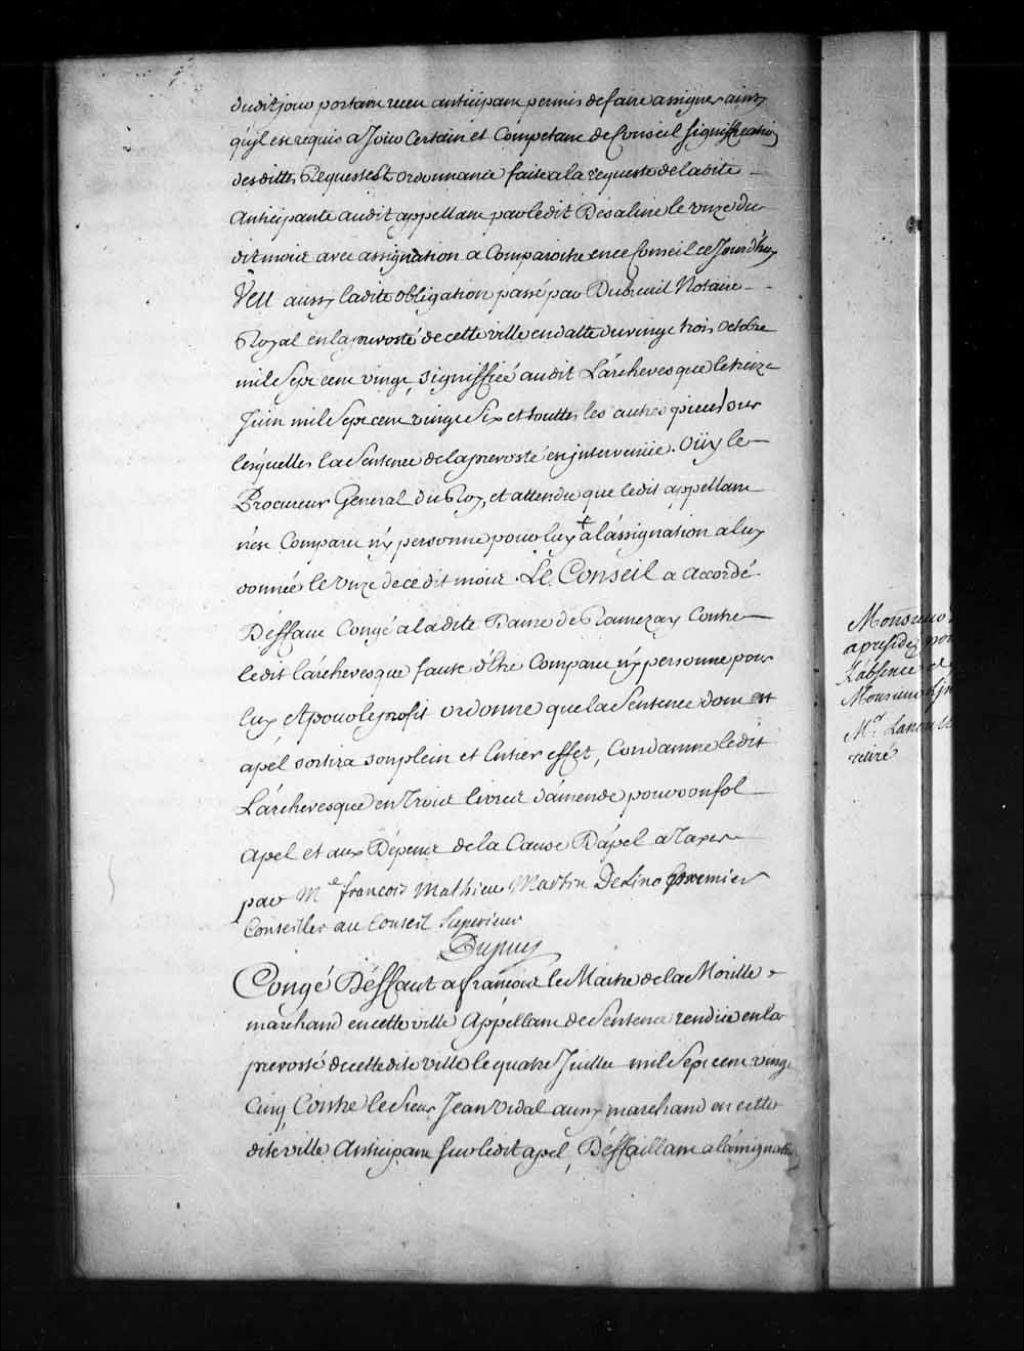 dudit jour portant receu anticipant permis de faire assigner ainsy
qu'il est requis a Jour Certain et Competant de Conseil signiffication
desdittes Requeste et ordonnance faite a la requeste de ladite
anticipante audit appellant par ledit Désaline le unze du
dit mois avec assignation a Comparoitre en ce Conseil ce Jourd'huy
Veu aussy ladite obligation passé par Dubreuil Notaire
Royal en la prevosté de cette ville en datte du vingt trois octobre
mil Sept cent vingt, signiffiée audit Lárchevesque le treize
Juin mil Sept cent vingt Six et touttes les autres pieces sur
lesquelles la Sentence de la prevosté est intervenüe. Oüy le
Procureur General du Roy, et attendu que ledit appellant
n'est Comparu n'y personne pour luy a lássignation a luy
donnée le unze de ce dit mois. Le Conseil a accordé
Déffaut Congé a ladite Dame de Ramezay Contre
ledit lárchevesque faute d'être Comparu n'y personne pour
luy, et pour le profit ordonne que la Sentence dont est
apél sortira son plein et Entier effet, Condamne ledit
Lárchevesque en Trois livres d'amende pour son fol
apel et aux Dépens de la Cause Dápel a Taxer
par Me. françois Mathieu Martin De Lino premier
Conseiller au Conseil Superieur
Dupuy
Congé Déffaut a françois le Maitre de la Morille
marchand en cette ville Appéllant de Sentence rendüe en la
prevosté de cette dite ville le quatre Juillet mil Sept cent vingt
Cinq Contre le Sieur Jean Vidal aussy marchand en cette
dite ville Anticipant sur ledit apél, Déffaillant a lássignation
Monsieur
a presidé pour
Labsence de
Monsieur
Mr. Lanou
retiré